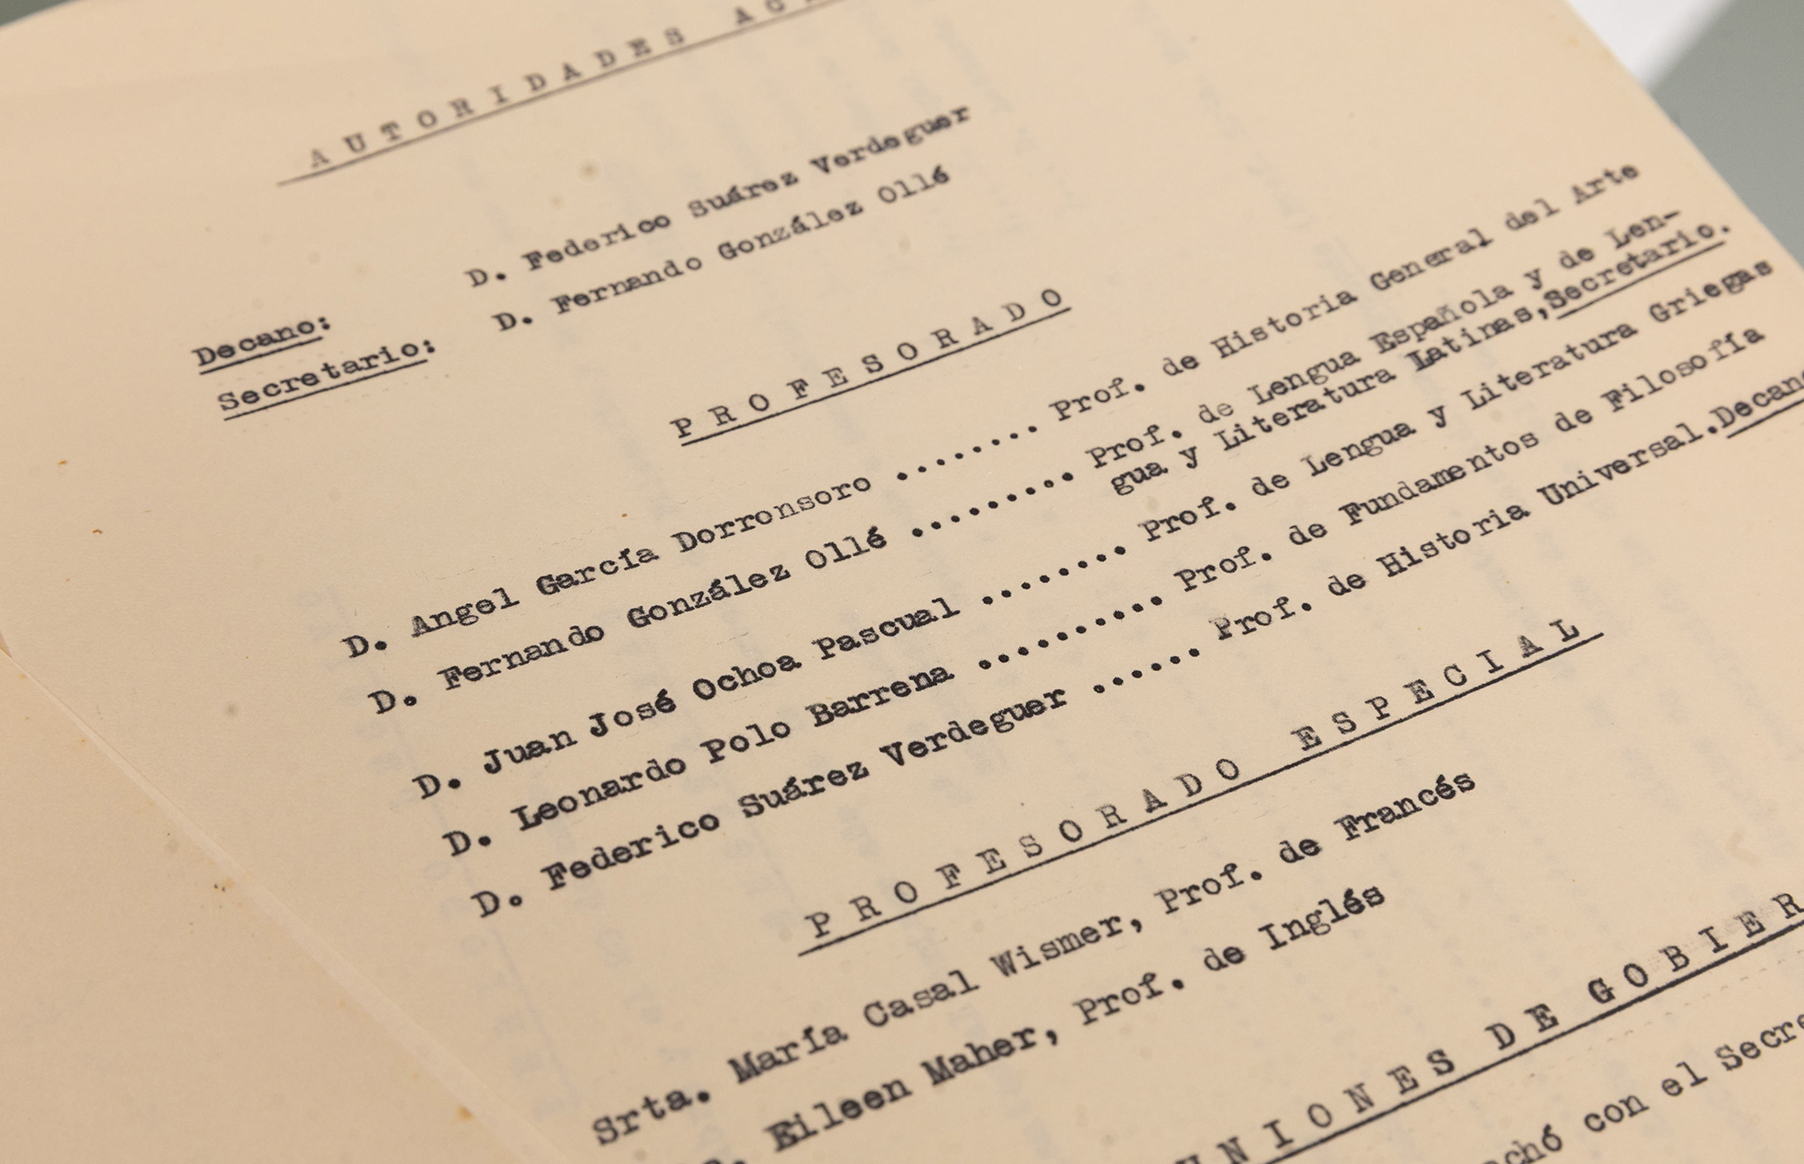 A U T O R I D A D E S
Decano: D. Federico Suárez Verdeguer
Secretario: D. Fernando González Ollé
P R O F E S O R A D O
D. Angel García Dorronsoro ........ Prof. de Historia General del Arte
D. Fernando González Ollé ......... Prof. de Lengua Española y de Len-
gua y Literatura Latinas,Secretario.
D. Juan José Ochoa Pascual ........ Prof. de Lengua y Literatura Griegas
D. Leonardo Polo Barrena .......... Prof. de Fundamentos de Filosofía
D. Federico Suárez Verdeguer ...... Prof. de Historia Universal.Decano
P R O F E S O R A D O   E S P E C I A L
Srta. María Casal Wismer, Prof. de Francés
Eileen Maher, Prof. de Inglés
D E
con el